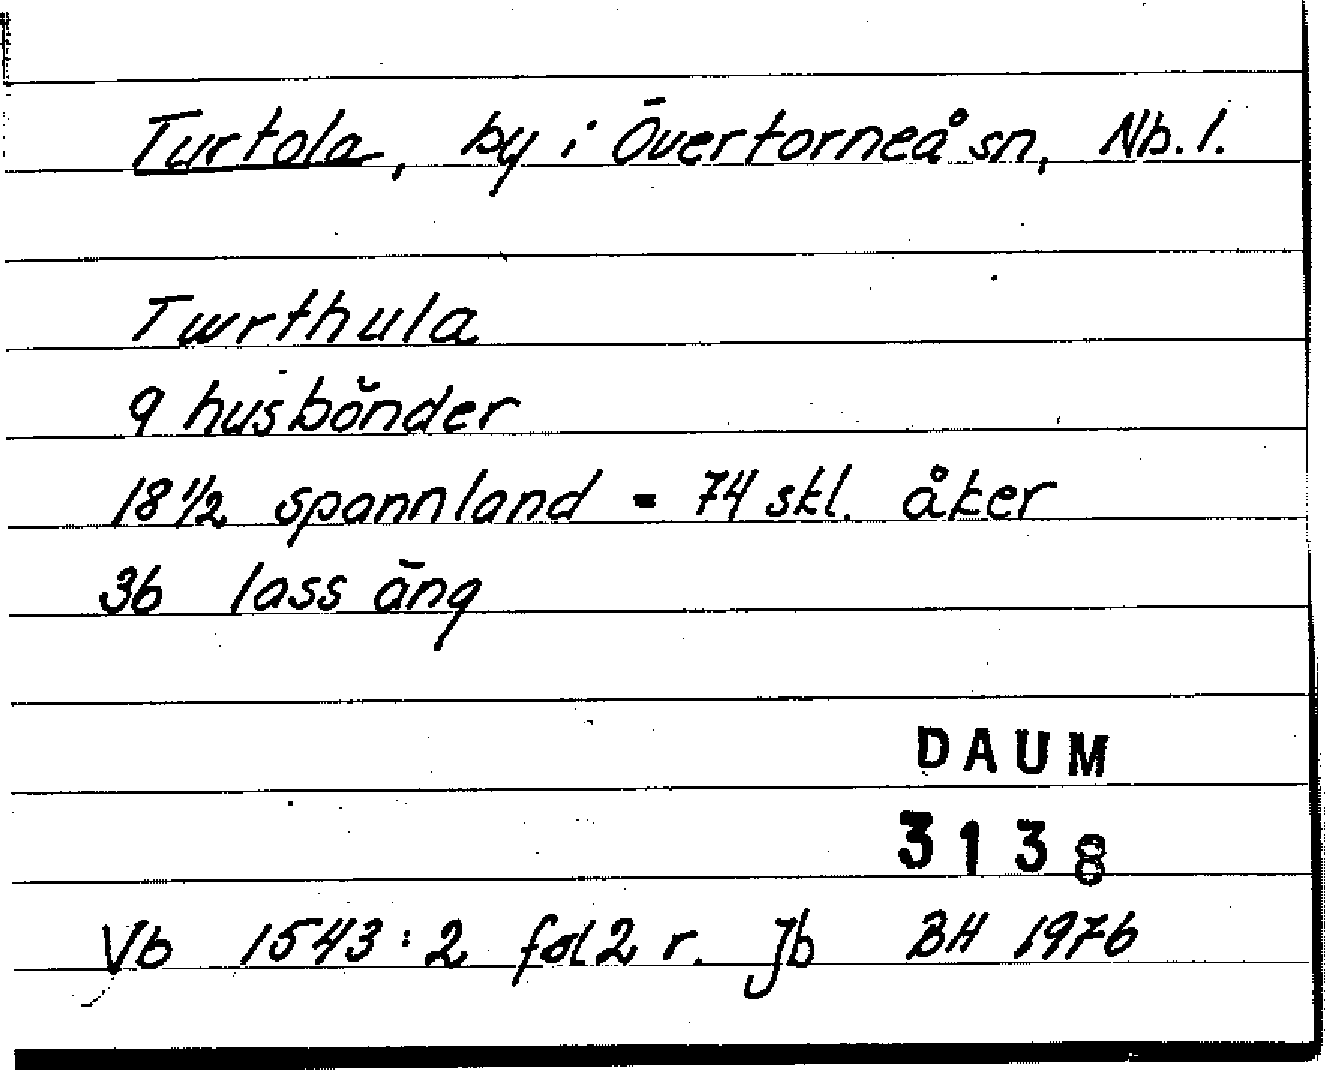 Turtola, by i Övertorneå sn, Nb. l.
Twrthula
9 husbönder
18 1/2 spannland = 74 skl. åker
36 lass äng
DAUM
3138
Vb 1543:2 fol 2 r. Jb BH 1976